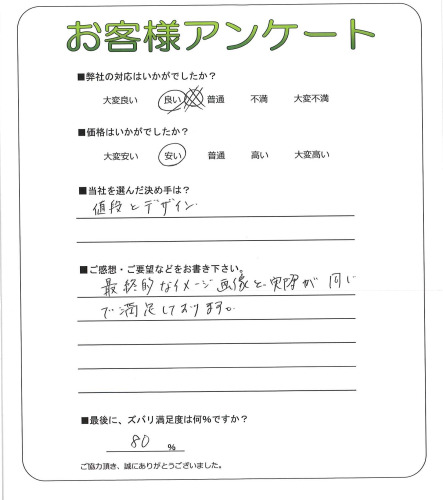 お客様アンケート
■弊社の対応はいかがでしたか？
大変良い 良い 普通 不満 大変不満
■価格はいかがでしたか？
大変安い 安い 普通 高い 大変高い
■当社を選んだ決め手は？
値段とデザイン
■ご感想・ご要望などをお書き下さい。
最終的なイメージ画像と実際が同じ
で満足しております。
■最後に、ズバリ満足度は何％ですか？
80 ％
ご協力頂き、誠にありがとうございました。